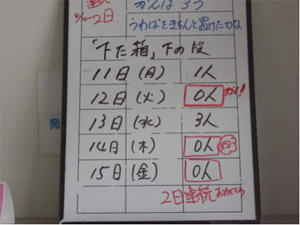 2日.
がんばろう
うわばきをきちんと置けたかな
「下た箱」下の段
11日(月) 1人
12日(火) 0人
13日(水) 3人
14日(木) 0人
15日(金) 0人
2日連続おめでとう
発